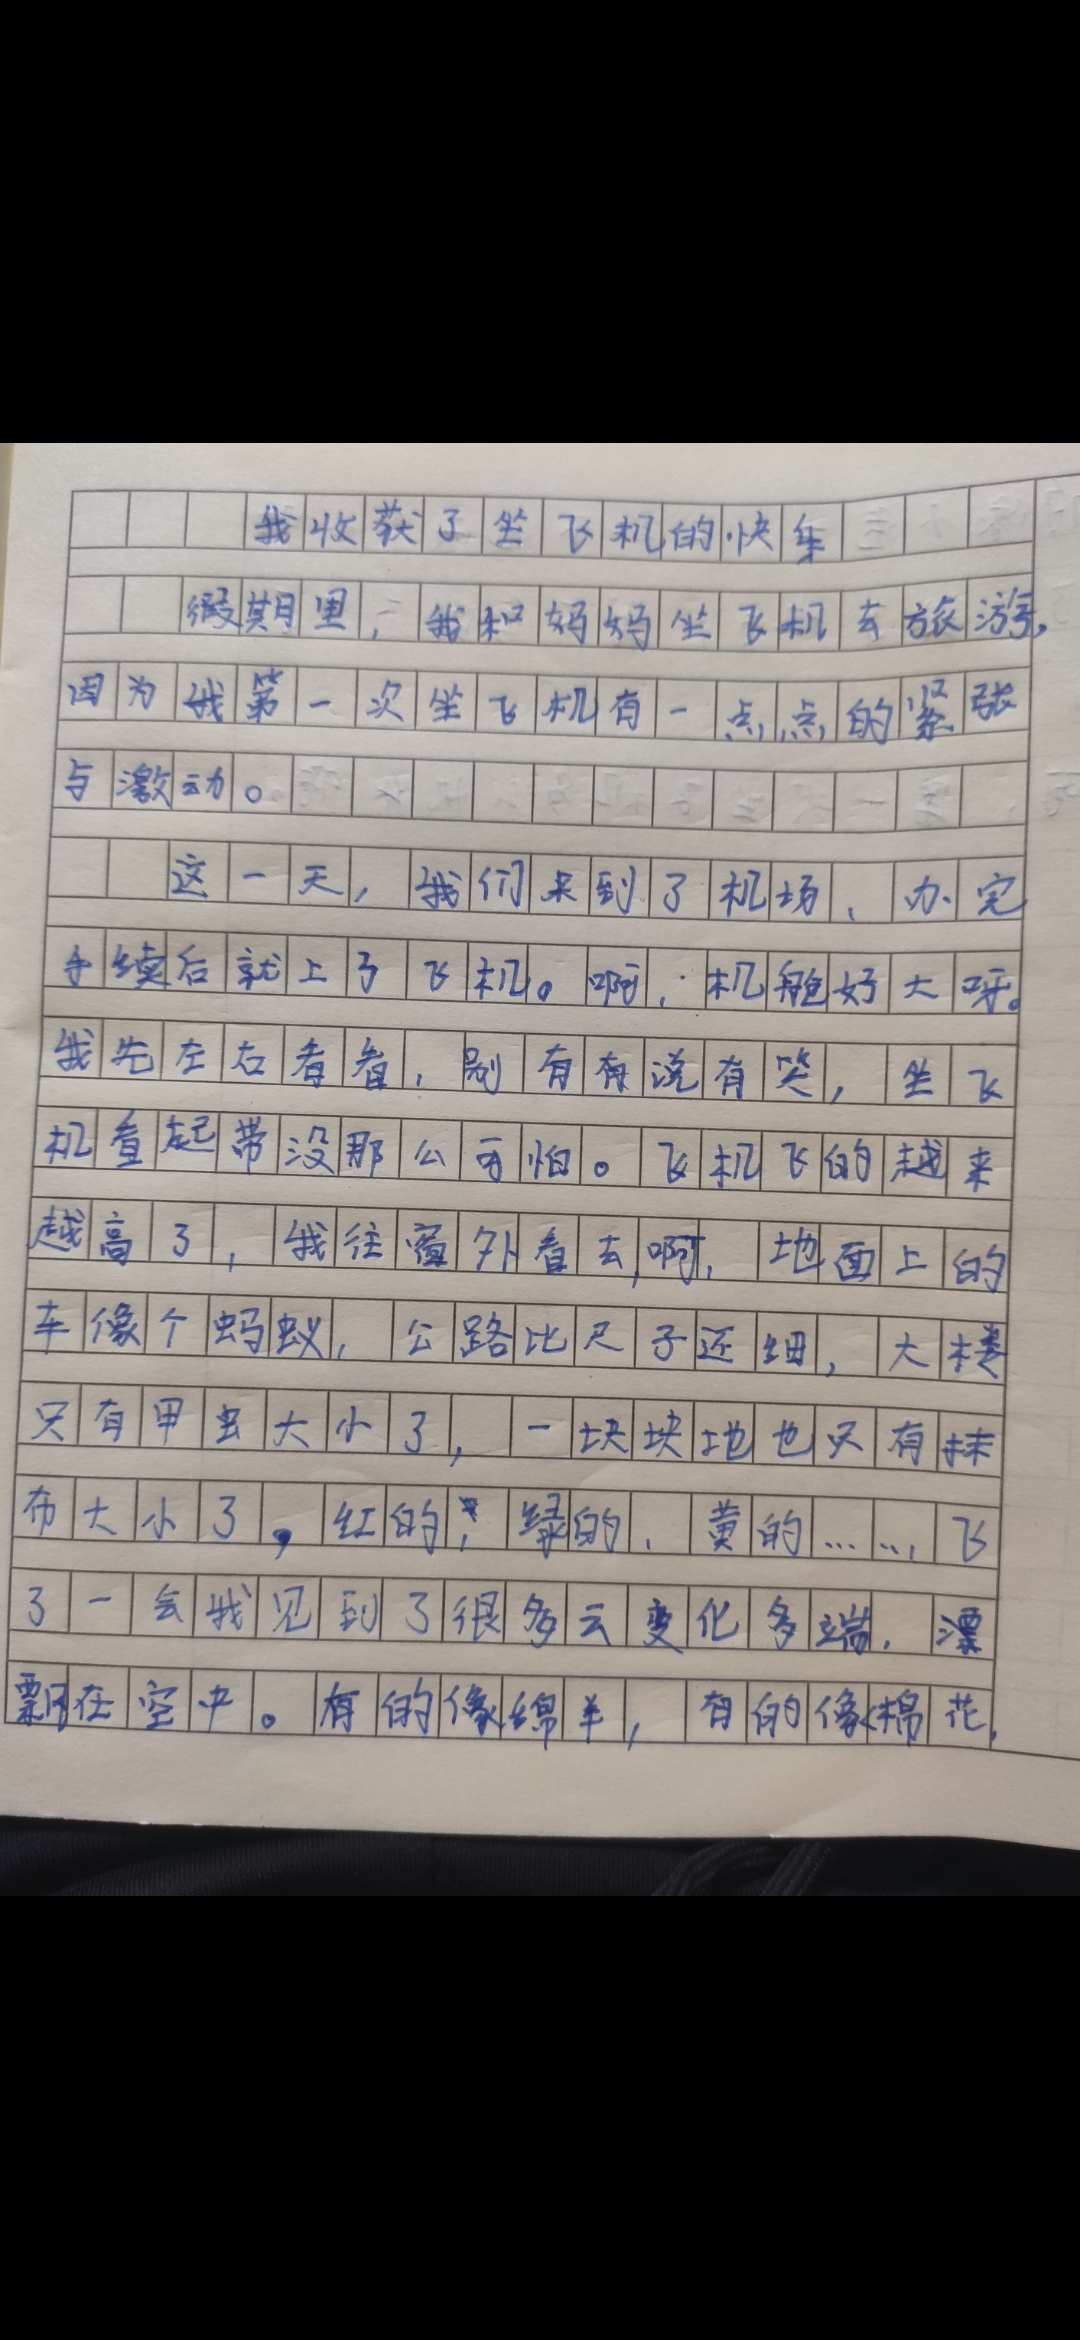 我收获了坐飞机的快车
假期里，我和妈妈坐飞机去旅游，
因为我第一次坐飞机有一点点的紧张
与激动。
这一天，我们来到了机场、办完
手续后就上了飞机。啊，机舱好大呀。
我先左右看看，别有有说有笑，坐飞
机看起带没那公可怕。飞机飞的越来
越高了，我往窗外看去，啊，地面上的
车像个蚂蚁，公路比尺子还细，大楼
只有甲虫大小了，一块块地也只有抹
布大小了，红的，绿的、黄的……，飞
了一会我见到了很多云变化多端，漂
飘在空中。有的像绵羊，有的像棉花，